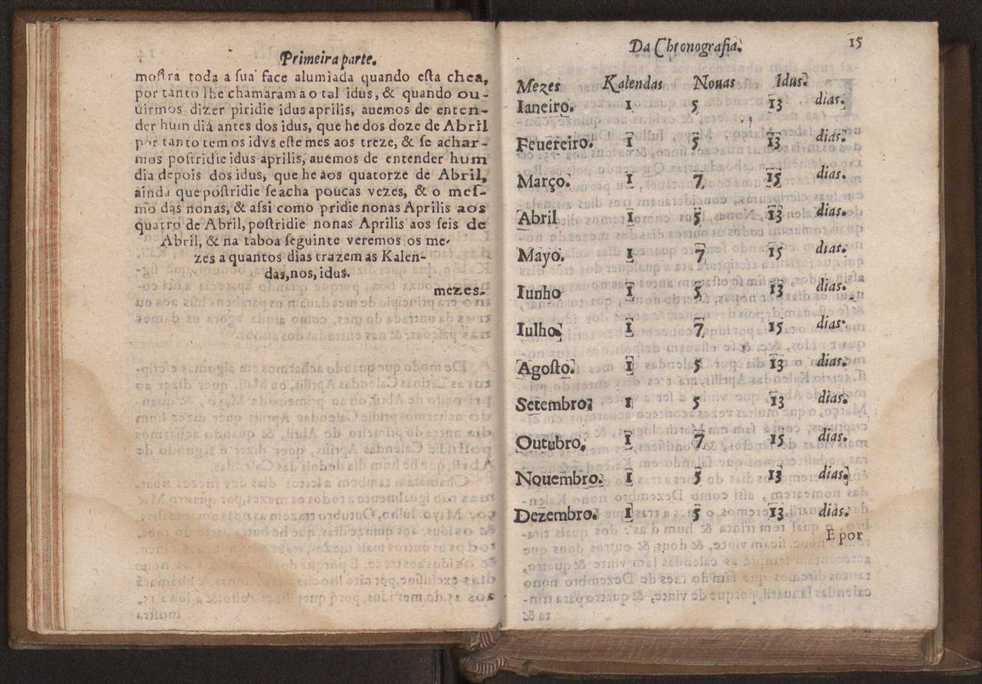 Primeira parte.
moſtra toda a ſua face alumiada quando eſta chea,
por tanto lhe chamaram ao tal idus, & quando ou-
uirmos dizer piridie idus aprilis, auemos de enten-
der hum diá antes dos idus, que he dos doze de Abril
por tanto temos idvs eſte mes aos treze, & ſe achar-
mos poſtridie idus aprilis, auemos de entender hum
dia depois dos idus, que he aos quatorze de Abril,
ainda que poſtridie ſe acha poucas vezes, & o meſ-
mo das nonas, & aſsi como pridie nonas Aprilis aos
quatro de Abril, poſtridie nonas Aprilis aos ſeis de
Abril, & na taboa ſeguinte veremos os me-
zes a quantos dias trazem as Kalen-
das, nos, idus.
mezes.
Da Chronografia. 15
Mezes Kalendas Nonas Idus.
Ianeiro. 1 5 13 dias.
Feuereiro. 1 5 13 dias.
Março. 1 7 15 dias.
Abril 1 5 13 dias.
Mayo. 1 7 15 dias.
Iunho 1 5 13 dias.
Iulho, 1 7 15 dias.
Agoſto. 1 5 13 dias.
Setembro, 1 5 13 dias.
Outubro. 1 7 15 dias.
Nouembro. 1 5 13 dias.
Dezembro. 1 5 13 dias.
E por